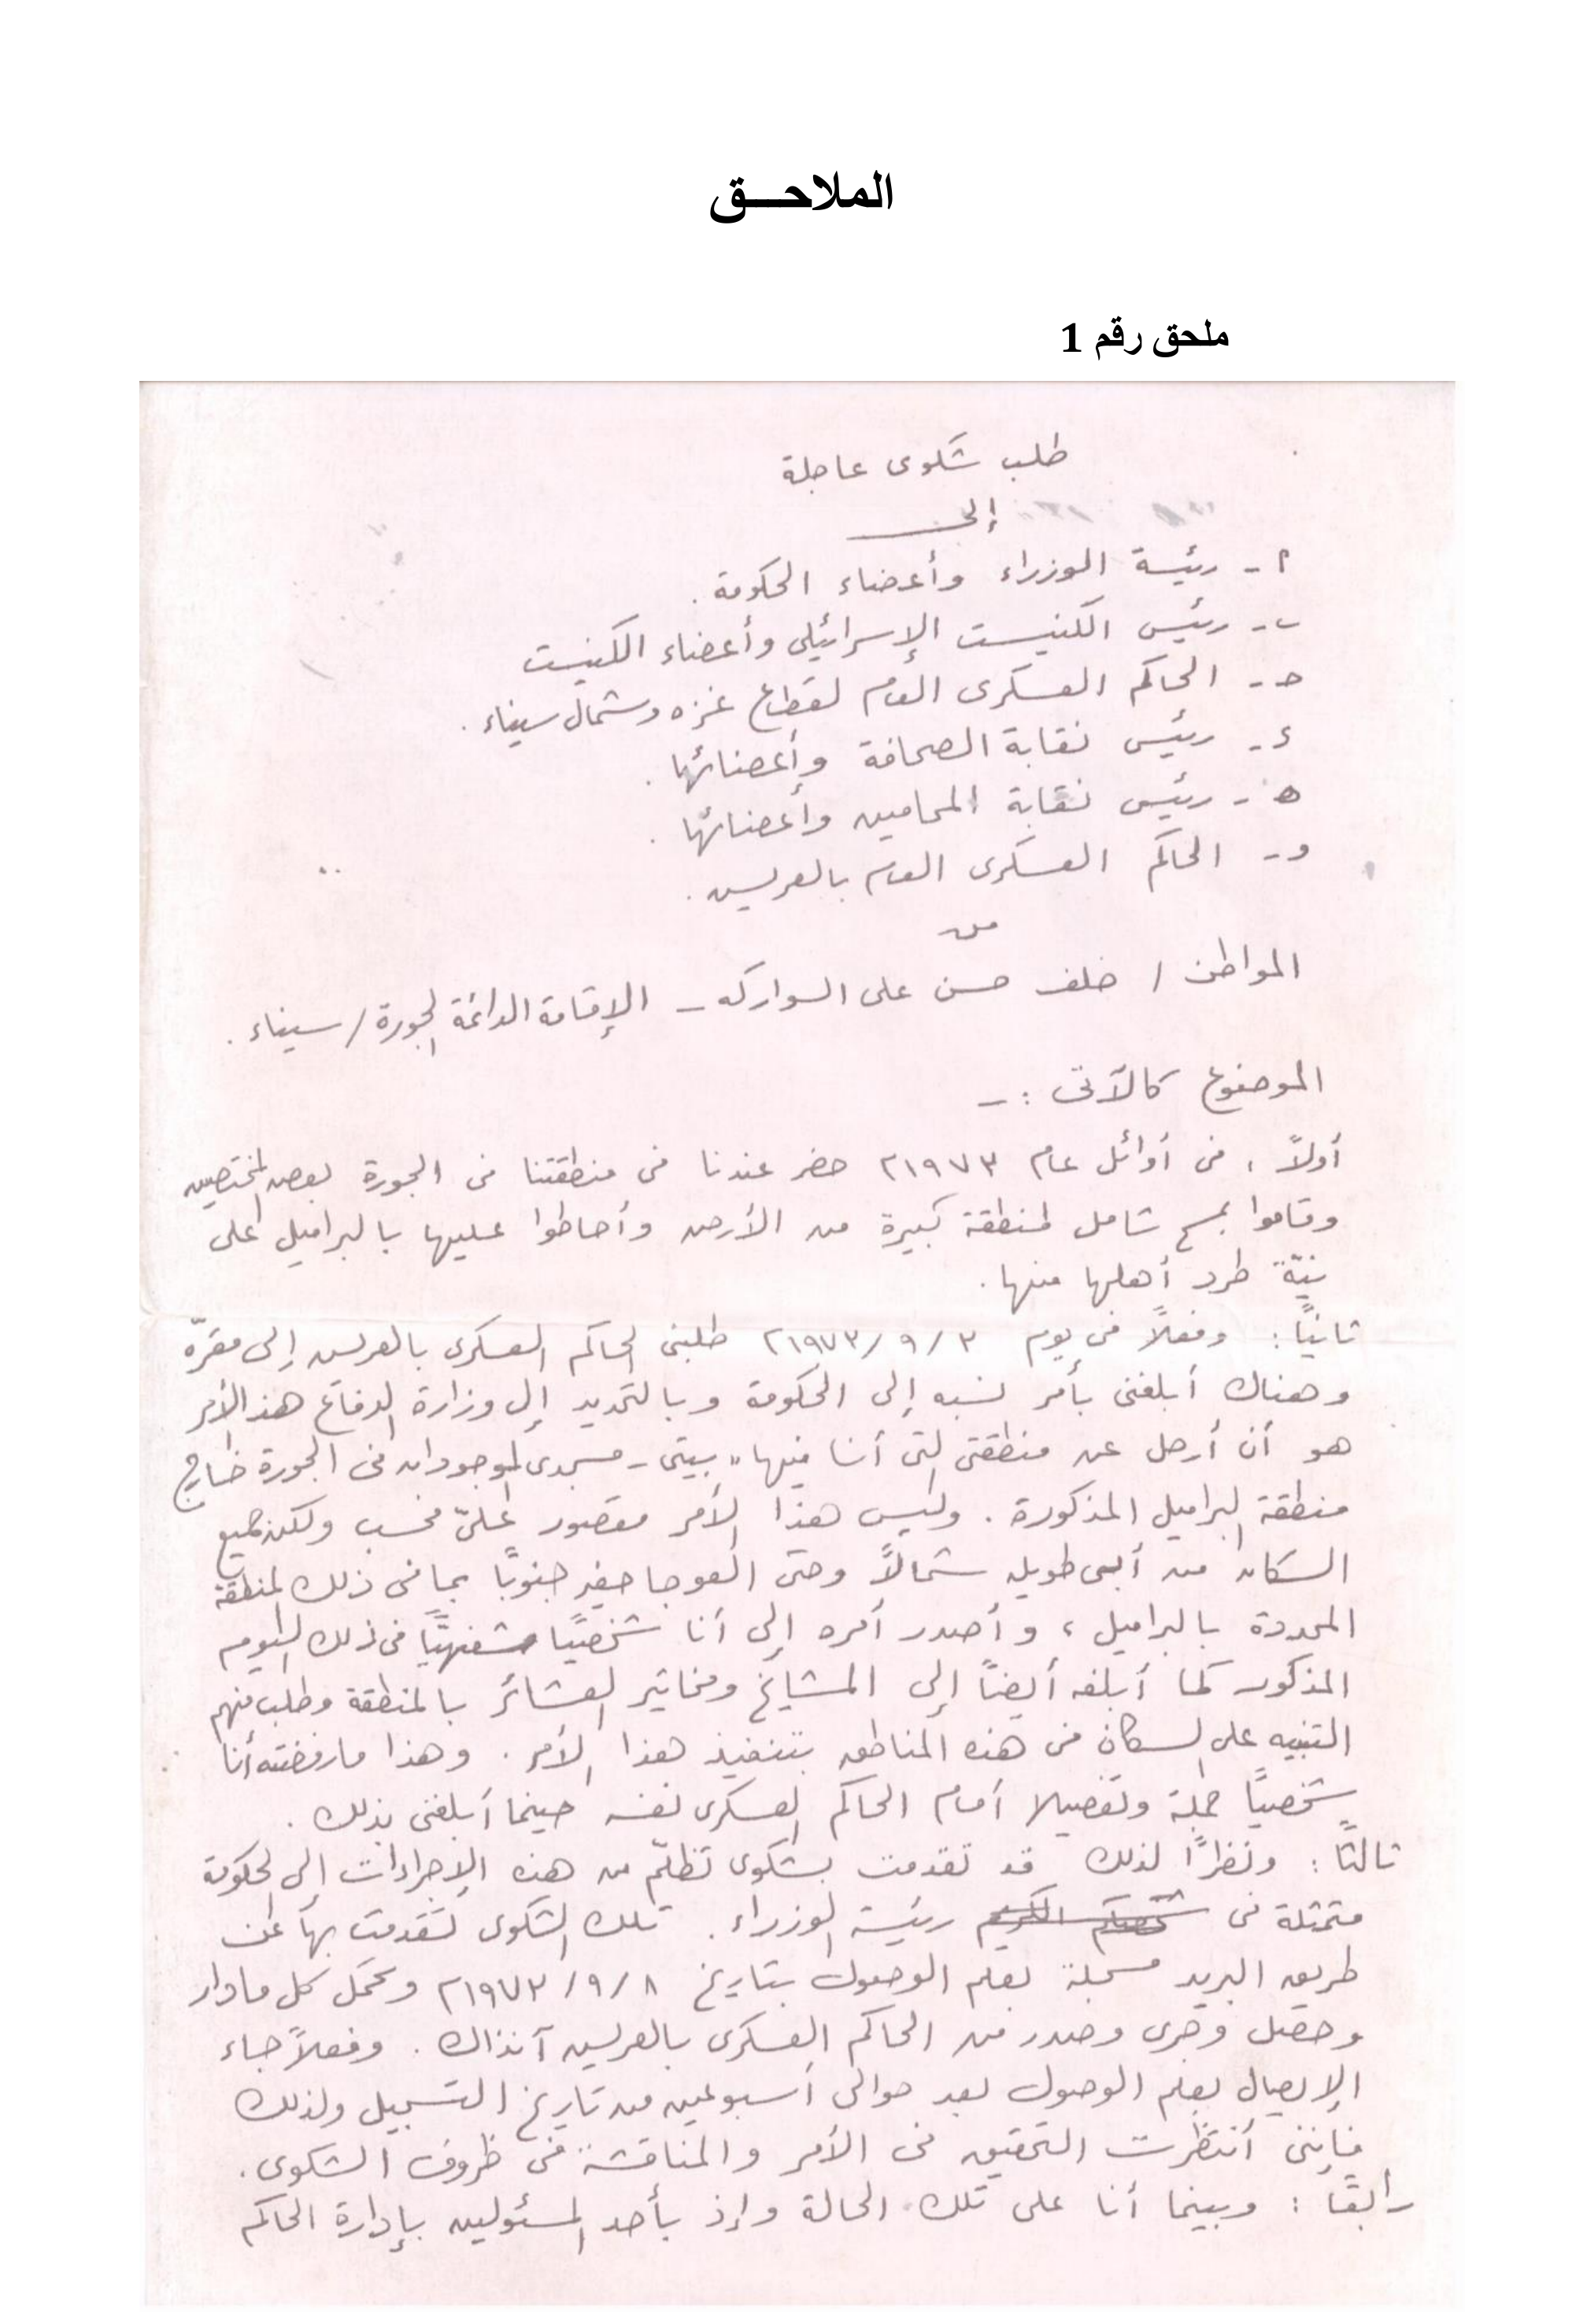 الملاحـــق
ملحق رقم 1
طلب شكوى عاجلة
إلى
أ - رئيسة الوزراء وأعضاء الحكومة .
ب - رئيس الكنيست الإسرائيلى وأعضاء الكنيست
حـ - الحاكم العسكرى العام لقطاع غزه وشمال سيناء .
ء - رئيس نقابة الصحافة وأعضائها .
هـ - رئيس نقابة المحامين وأعضائها .
و - الحاكم العسكرى العام بالعريش .
من
المواطن / خلف حسن على السواركه - الإقامة الدائمة الجورة / سيناء .
الموضوع كالآتى : -
أولاً ، فى أوائل عام ١٩٧٣م حضر عندنا فى منطقتنا فى الجورة بعض المختصين
وقاموا بمسح شامل لمنطقة كبيرة من الأرض وأحاطوا عليها بالبراميل على
نيّة طرد أهلها منها .
ثانياً : وفعلاً فى يوم ٣ / ٩ / ١٩٧٣م طلبنى الحاكم العسكرى بالعريش إلى مقرّه
وهناك أبلغنى بأمر نسبه إلى الحكومة وبالتحديد إلى وزارة الدفاع هذا الأمر
هو أن أرحل عن منطقتى التى أنا فيها " بيتى - مسجدى الموجودان فى الجورة خارج
منطقة البراميل المذكورة . وليس هذا الأمر مقصور علىّ فحسب ولكن جميع
السكان من أبى طويله شمالاً وحتى العوجا حفير جنوبًا بما فى ذلك المنطقة
المحددة بالبراميل ، وأصدر أمره إلى أنا شخصيًا شفهيًا فى ذلك اليوم
المذكور كما أبلغه أيضًا إلى المشايخ ومخاتير العشائر بالمنطقة وطلب منهم
التنبيه على السكان فى هذه المناطق بتنفيذ هذا الأمر . وهذا ما رفضته أنا
شخصيًا جملة وتفصيلا أمام الحاكم العسكرى نفسه حينما أبلغنى بذلك .
ثالثًا : ونظرًا لذلك قد تقدمت بشكوى تظلّم من هذه الإجراءات إلى الحكومة
متمثلة فى رئيسة الوزراء . تلك الشكوى تقدمت بها عن
طريق البريد مسجلة بعلم الوصول بتاريخ ٨ / ٩ / ١٩٧٣م وتحمل كل ما دار
وحصل وجرى وصدر من الحاكم العسكرى بالعريش آنذاك . وفعلاً جاء
الإيصال بعلم الوصول بعد حوالى أسبوعين من تاريخ التسجيل ولذلك
فإننى أنتظرت التحقيق فى الأمر والمناقشة فى ظروف الشكوى .
رابعًا : وبينما أنا على تلك الحالة وإذ بأحد المسئولين بإدارة الحاكم